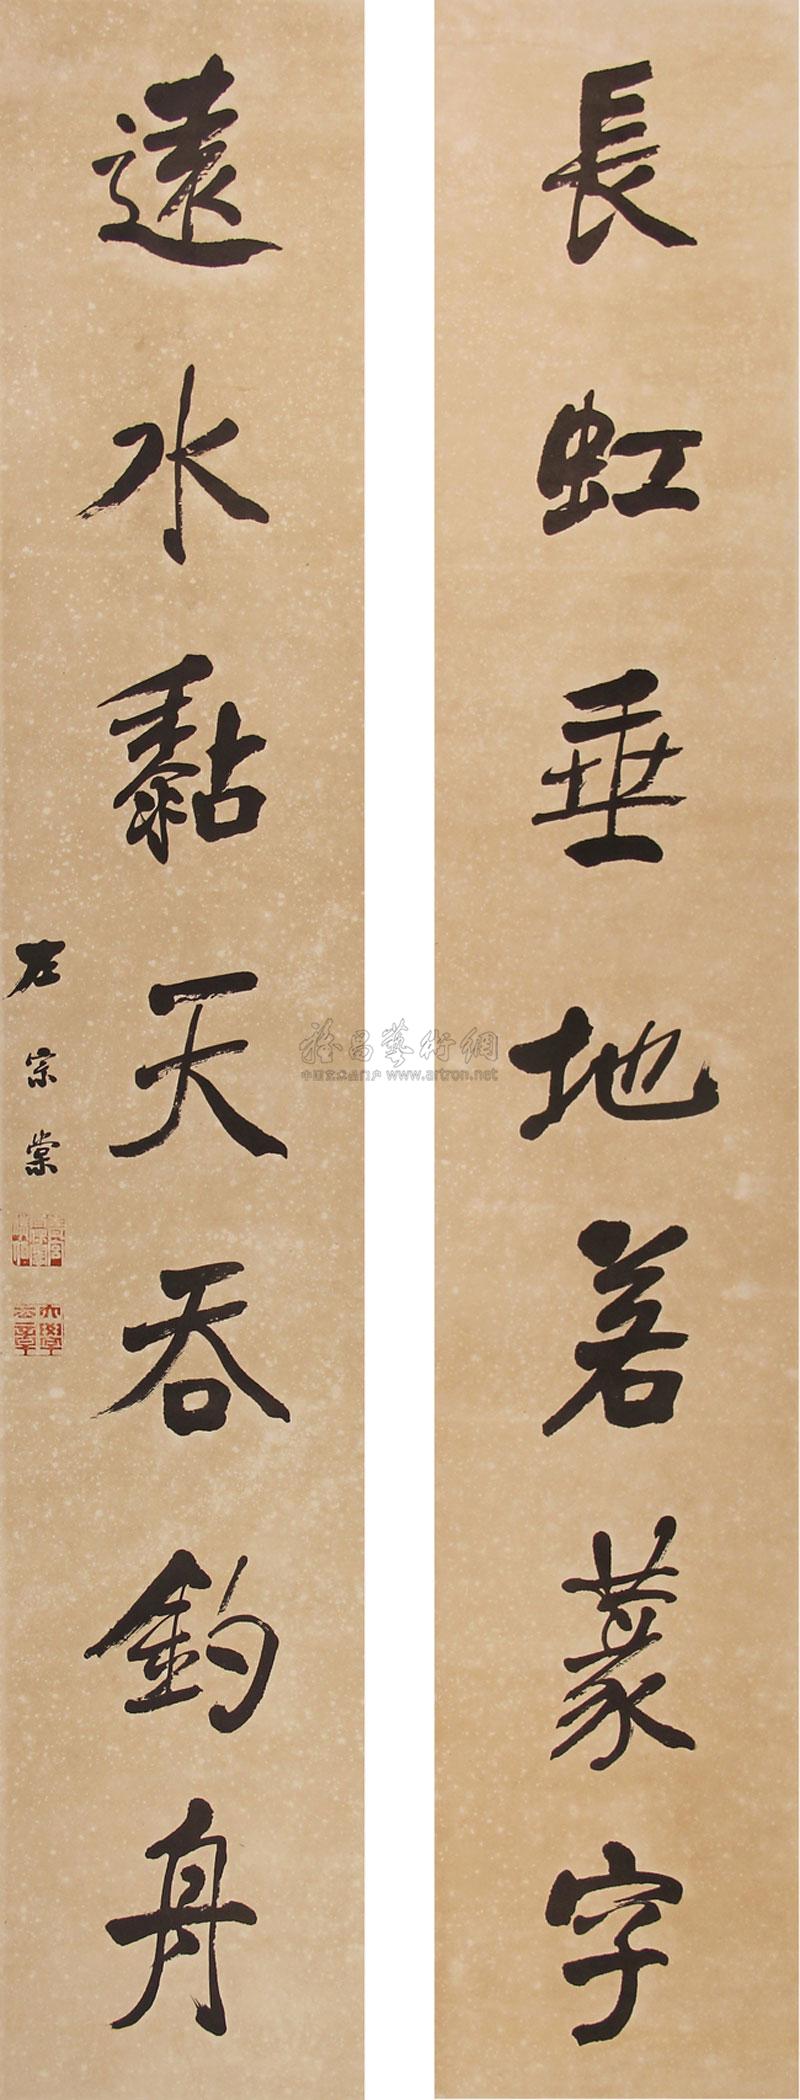 長虹垂地若篆字
遠水黏天吞釣舟
左宗棠
雅昌藝術網
中国艺术品门户 www.artron.net